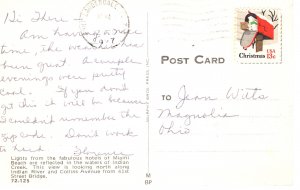 Hi There
Am having a nice
time, the weather has
been great. A couple
evenings were pretty
cool. If you don't
get this it will be because
I couldn't remember the
zip code. Don't work
to hard. Florence
Lights from the fabulous hotels of Miami
Beach are reflected in the waters of Indian
Creek. This view is looking north along
Indian River and Collins Avenue from 41st
Street Bridge.
72-125
POST CARD
USA
Christmas 13c
TO
Jean Wilts
Magnolia
Ohio